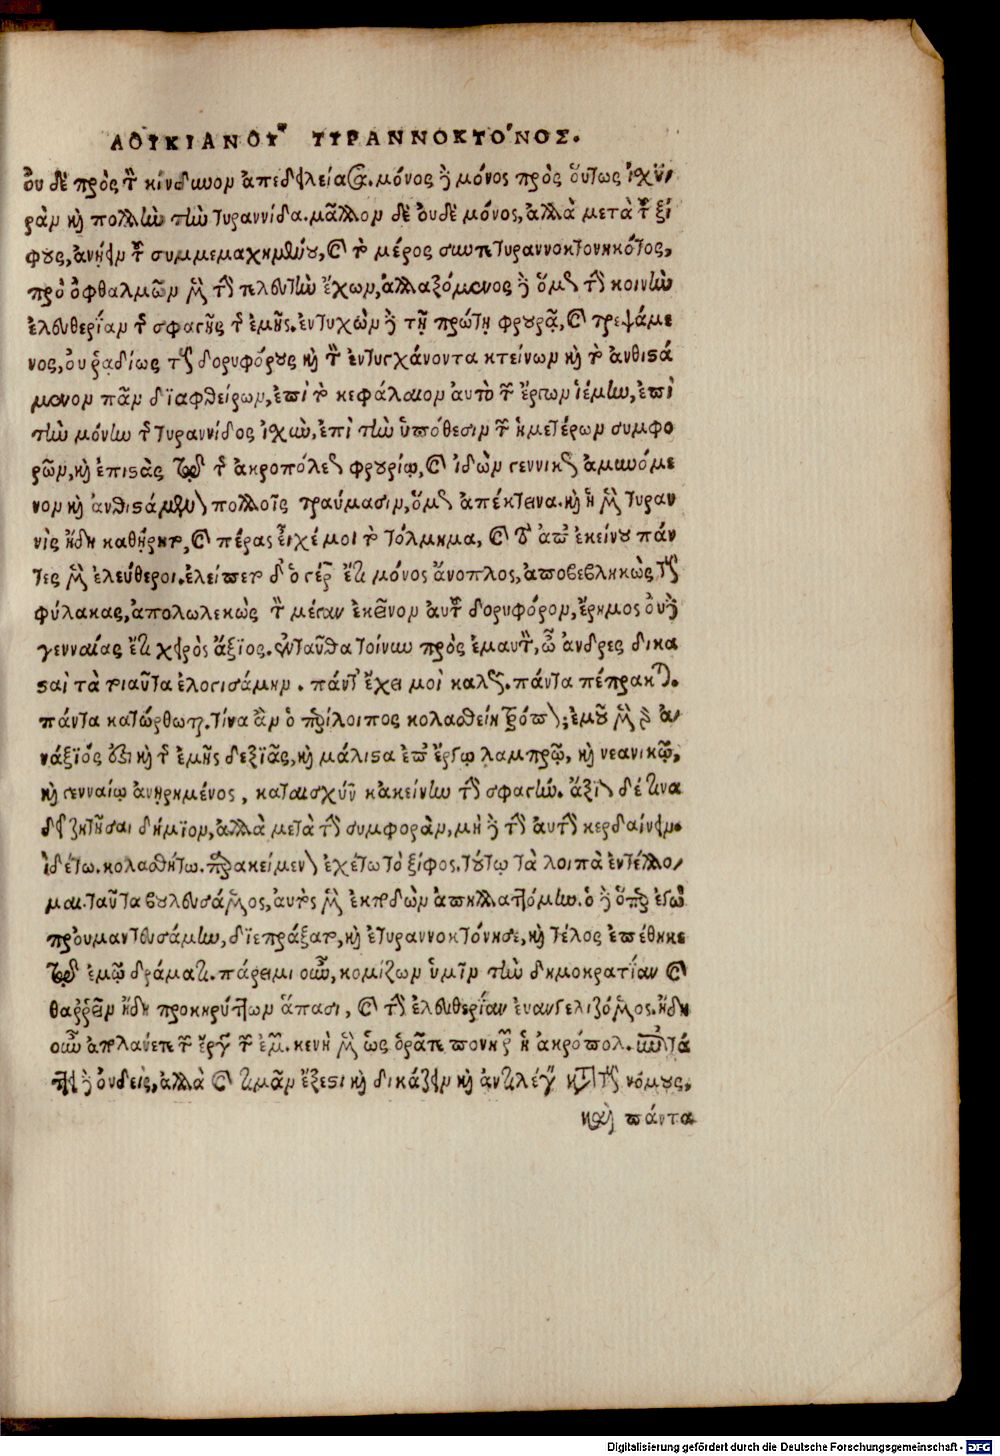 ΛΟΥΚΙΑΝΟΥ͂ ΤΥΡΑΝΝΟΚΤΌΝΟΣ.
οὐ δὲ πρὸς τὸν κίνδυνον ἀπεδειλίασα. μόνος γὰρ μόνος πρὸς οὕτως ἰσχυ-
ρὰν καὶ πολλὴν τὴν τυραννίδα. μᾶλλον δὲ οὐδὲ μόνος, ἀλλὰ μετὰ τοῦ ξί
φους, ἀνῄειν τοῦ συμμεμαχημένου, καὶ τὸ μέρος συντετυραννοκτονηκότος,
πρὸ ὀφθαλμῶν μὲν τὴν τελευτὴν ἔχων, ἀλλαξόμενος γὰρ ὅμως τὴν κοινὴν
ἐλευθερίαν τῆς σφαγῆς τῆς ἐμῆς. ἐντυχὼν γὰρ τῇ πρώτῃ φρουρᾷ, καὶ τρεψάμε
νος, οὐ ῥᾳδίως τοὺς δορυφόρους καὶ τὸν ἐντυγχάνοντα κτείνων καὶ τὸ ἀνθιστά
μενον πᾶν διαφθείρων, ἐπὶ τὸ κεφάλαιον αὐτὸ τῶν ἔργων ἱέμην, ἐπὶ
τὴν μόνην τῆς τυραννίδος ἰσχὺν, ἐπὶ τὴν ὑπόθεσιν τῶν ἡμετέρων συμφο
ρῶν, καὶ ἐπιστὰς τῷ τῆς ἀκροπόλεως φρουρίῳ, καὶ ἰδὼν γεννικῶς ἀμυνόμε
νον καὶ ἀνθιστάμενον πολλοῖς τραύμασιν, ὅμως ἀπέκτεινα. καὶ ἡ μὲν τυραν
νὶς ἤδη καθῄρητο, καὶ πέρας εἶχέ μοι τὸ τόλμημα, καὶ τὸ ἀπ' ἐκείνου πάν
τες μὲν ἐλεύθεροι. ἐλείπετο δ' ὁ γέρων ἔτι μόνος ἄνοπλος, ἀποβεβληκὼς τοὺς
φύλακας, ἀπολωλεκὼς τὸν μέγαν ἐκεῖνον αὐτοῦ δορυφόρον, ἔρημος οὐδὲ
γενναίας ἔτι χειρὸς ἄξιος. ἐνταῦθα τοίνυν πρὸς ἐμαυτὸν, ὦ ἄνδρες δικα
σταὶ τὰ τοιαῦτα ἐλογισάμην. πάντ' ἔχει μοι καλῶς. πάντα πέπρακται.
πάντα κατώρθωται. τίνα ἂν ὁ περίλοιπος κολασθείη τρόπον; ἐμοῦ μὲν γὰρ ἀ-
νάξιός ἐστι καὶ τῆς ἐμῆς δεξιᾶς, καὶ μάλιστα ἐπ' ἔργῳ λαμπρῷ, καὶ νεανικῷ,
καὶ γενναίῳ ἀνῃρημένος, καταισχύνων κἀκείνην τὴν σφαγήν. ἄξιον δέ τινα
δεῖ ζητῆσαι δήμιον, ἀλλὰ μετὰ τὴν συμφορὰν, μὴ γὰρ τὴν αὐτὴν κερδαίνειν.
ἰδέτω. κολασθήτω. παρακείμενον ἐχέτω τὸ ξίφος. τούτῳ τὰ λοιπὰ ἐντέλλο-
μαι. ταῦτα βουλευσάμενος, αὐτὸς μὲν ἐκποδὼν ἀπηλλαττόμην. ὁ γὰρ ὅπερ ἐγὼ
προυμαντευσάμην, διεπράξατο, καὶ ἐτυραννοκτόνησε, καὶ τέλος ἐπέθηκε
τῷ ἐμῷ δράματι. πάρειμι οὖν, κομίζων ὑμῖν τὴν δημοκρατίαν καὶ
θαρρεῖν ἤδη προκηρύττων ἅπασι, καὶ τὴν ἐλευθερίαν εὐαγγελιζόμενος. ἤδη
οὖν ἀπολαύετε τῶν ἔργων τῶν ἐμῶν. κενὴ μὲν ὡς ὁρᾶτε πονηρῶν ἡ ἀκρόπολις. ἐπιτά
ττει γὰρ οὐδεὶς, ἀλλὰ καὶ τιμᾶν ἔξεστι καὶ δικάζειν καὶ ἀντιλέγειν κατὰ τοὺς νόμους,
καὶ πάντα
Digitalisierung gefördert durch die Deutsche Forschungsgemeinschaft - DFG